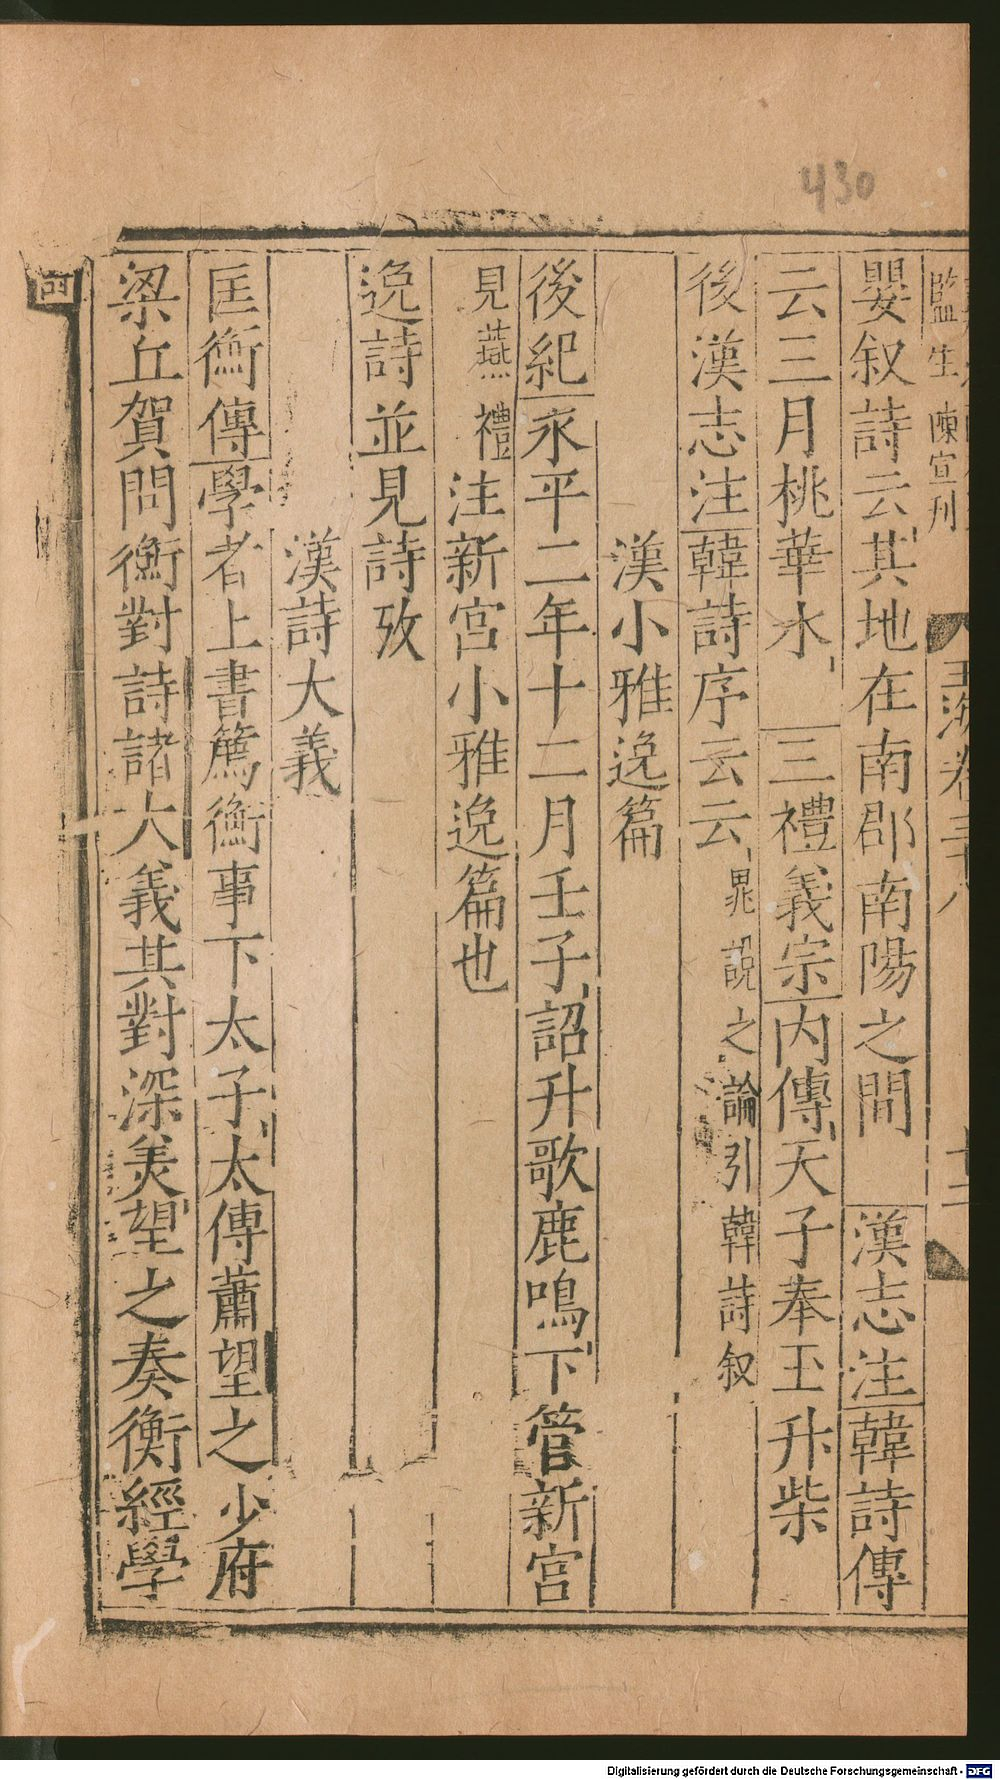 430
監生 陳宣刋
玉海卷三十八
十二
嬰叙詩云其地在南郡南陽之間 漢志注韓詩傳
云三月桃華水 三禮義宗内傳天子奉玉升柴
後漢志注韓詩序云云晁說之論引韓詩叙
漢小雅逸篇
後紀永平二年十二月壬子詔升歌鹿鳴下管新宫
見燕禮注新宫小雅逸篇也
逸詩並見詩攷
漢詩大義
匡衡傳學者上書薦衡事下太子太傅蕭望之少府
梁丘賀問衡對詩諸大義其對深美望之奏衡經學
Digitalisierung gefördert durch die Deutsche Forschungsgemeinschaft - DFG